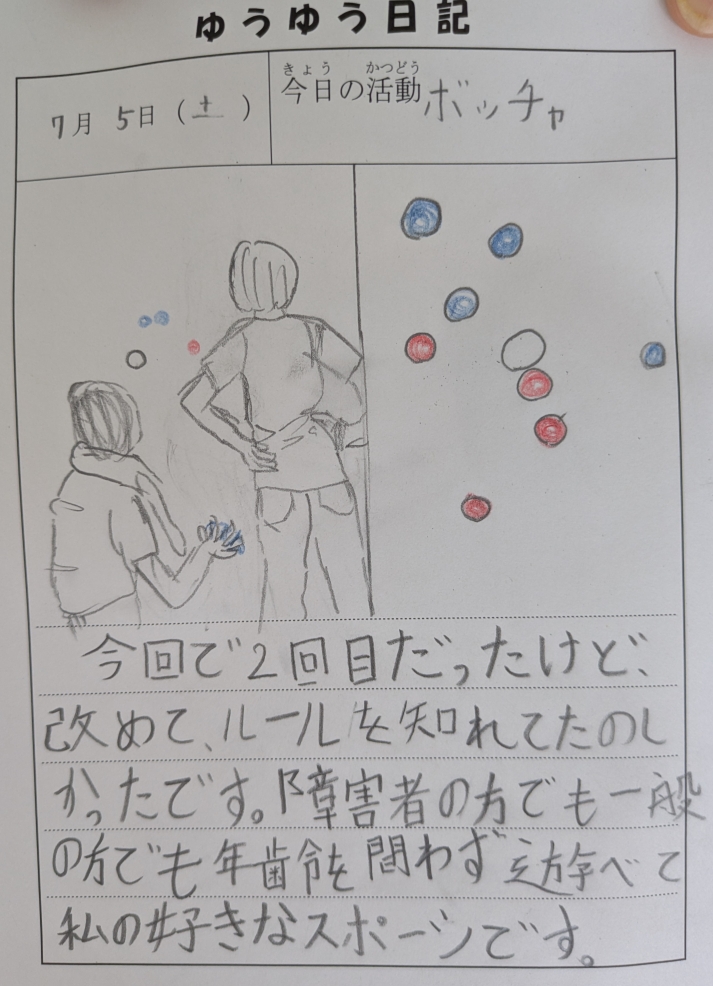 ゆうゆう日記
7月 5日（土）
きょう かつどう
今日の活動 ボッチャ
今回で2回目だったけど、
改めて、ルールを知れてたのし
かったです。障害者の方でも一般
の方でも年齢を問わず遊べて
私の好きなスポーツです。